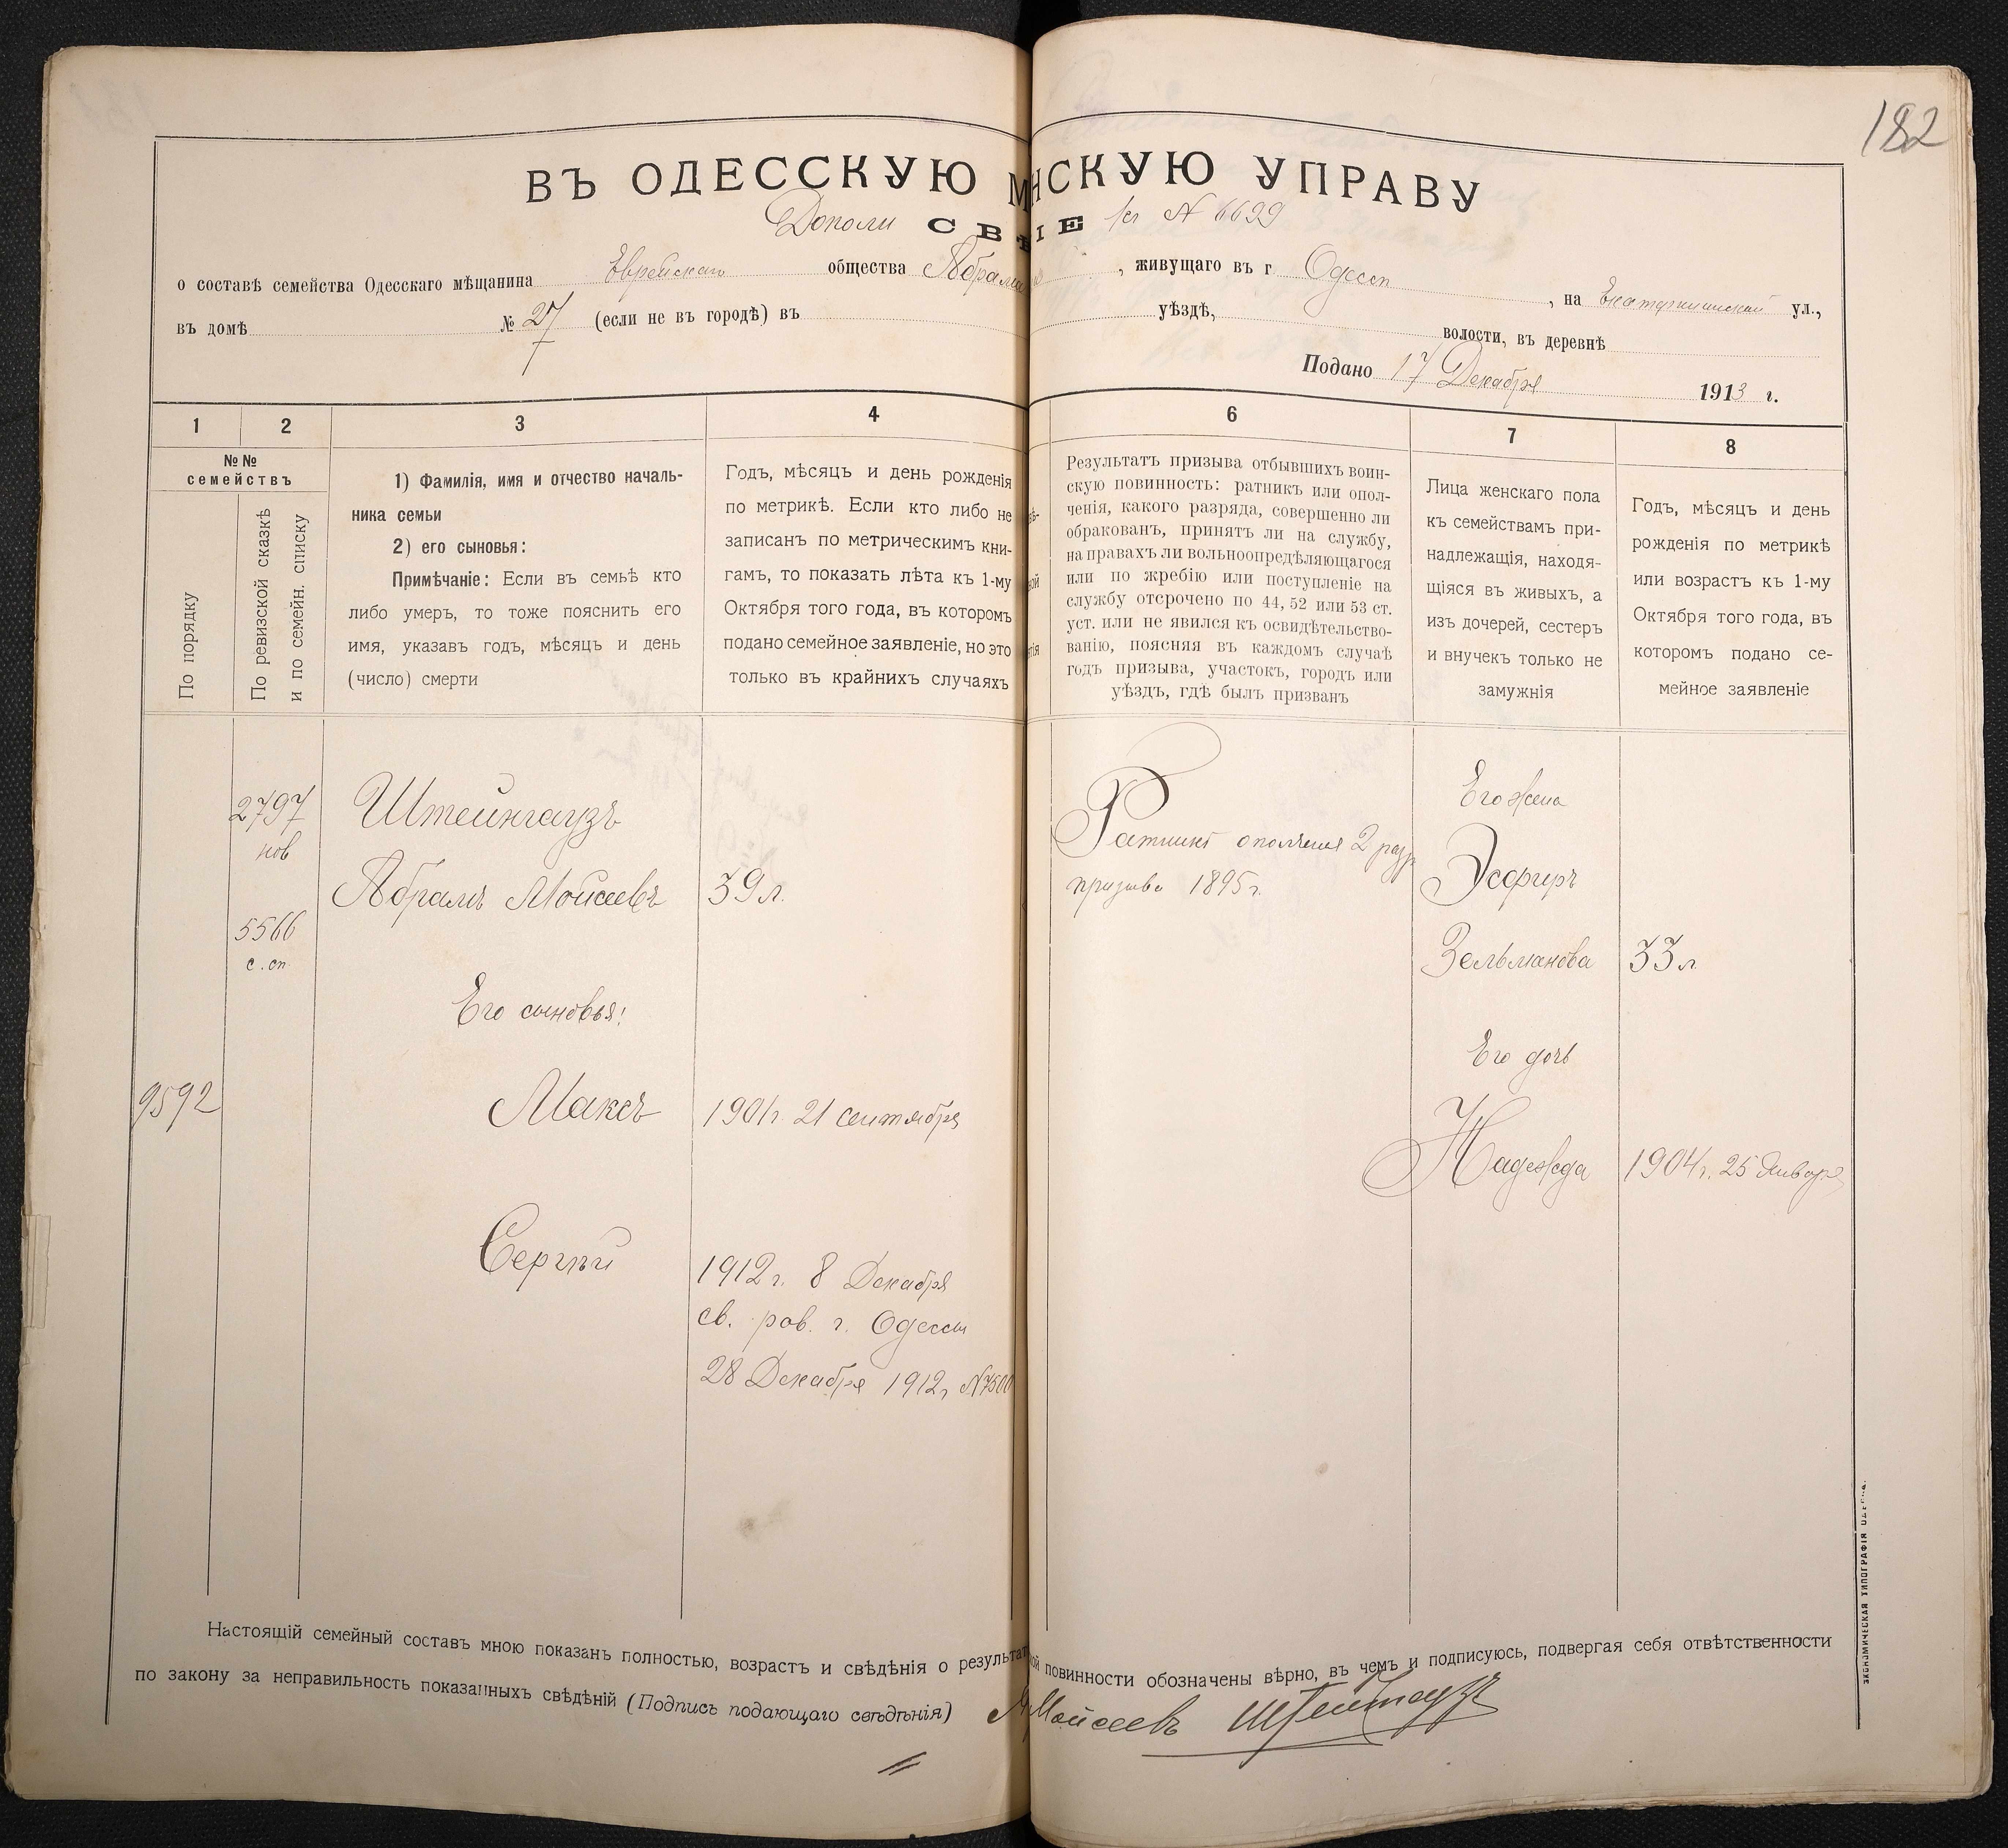 182
ВЪ ОДЕССКУЮ М НСКУЮ УПРАВУ
Дополн СВѢ ІЕ кг № 6699
о составѣ семейства Одесскаго мѣщанина Еврейскаго общества Абрама , живущаго въ г Одессѣ , на Екатерининской ул.,
въ домѣ № 27 (если не въ городѣ) въ уѣздѣ, волости, въ деревнѣ
Подано 17 Декабря 1913 г.
1 2 3 4 6 7 8
№№ семействъ
По порядку
По ревизской сказкѣ
и по семейн. списку
1) Фамилія, имя и отчество началь-
ника семьи
2) его сыновья:
Примѣчаніе: Если въ семьѣ кто
либо умеръ, то тоже пояснить его
имя, указавъ годъ, мѣсяцъ и день
(число) смерти
Годъ, мѣсяцъ и день рожденія
по метрикѣ. Если кто либо не
записанъ по метрическимъ кни-
гамъ, то показать лѣта къ 1-му
Октября того года, въ которомъ
подано семейное заявленіе, но это
только въ крайнихъ случаяхъ
Результатъ призыва отбывшихъ воин-
скую повинность: ратникъ или опол-
ченія, какого разряда, совершенно ли
обракованъ, принятъ ли на службу,
на правахъ ли вольноопредѣляющагося
или по жребію или поступленіе на
службу отсрочено по 44, 52 или 53 ст.
уст. или не явился къ освидѣтельство-
ванію, поясняя въ каждомъ случаѣ
годъ призыва, участокъ, городъ или
уѣздъ, гдѣ былъ призванъ
Лица женскаго пола
къ семействамъ при-
надлежащія, находя-
щіяся въ живыхъ, а
изъ дочерей, сестеръ
и внучекъ только не
замужнія
Годъ, мѣсяцъ и день
рожденія по метрикѣ
или возрастъ къ 1-му
Октября того года, въ
которомъ подано се-
мейное заявленіе
2797
нов
5566
с. сп
9592
Штейнгаузъ
Абрамъ Мойсеевъ 39 л.
Его сыновья:
Максъ 1901 г. 21 сентября
Сергѣй 1912 г. 8 Декабря
св. рав. г. Одессы
28 Декабря 1912 г. №7500
Ратникъ ополченія 2 разр
призыва 1895 г.
Его жена
Эсфирь
Зельманова 33 л
Его дочь
Надежда 1904 г. 25 Января
Настоящій семейный составъ мною показанъ полностью, возрастъ и свѣдѣнія о результат ой повинности обозначены вѣрно, въ чемъ и подписуюсь, подвергая себя отвѣтственности
по закону за неправильность показанныхъ свѣдѣній (Подпись подающаго свѣдѣнія) А Мойсеевъ Штейнгаузъ
ЭКОНОМИЧЕСКАЯ ТИПОГРАФІЯ ОДЕССА.